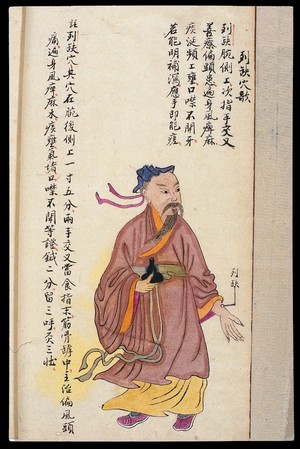 列缺穴歌
列缺腕側上次指手交叉
善療偏頭患遍身風痺麻
痰涎頻上壅口噤不開牙
若能明補瀉應手即能瘥
註列缺穴其穴在腕後側上一寸五分兩手交叉當食指末筋骨罅中主治偏風頭
痛遍身風痺麻木痰壅氣堵口噤不開等證鍼二分留三呼灸三壯
列缺